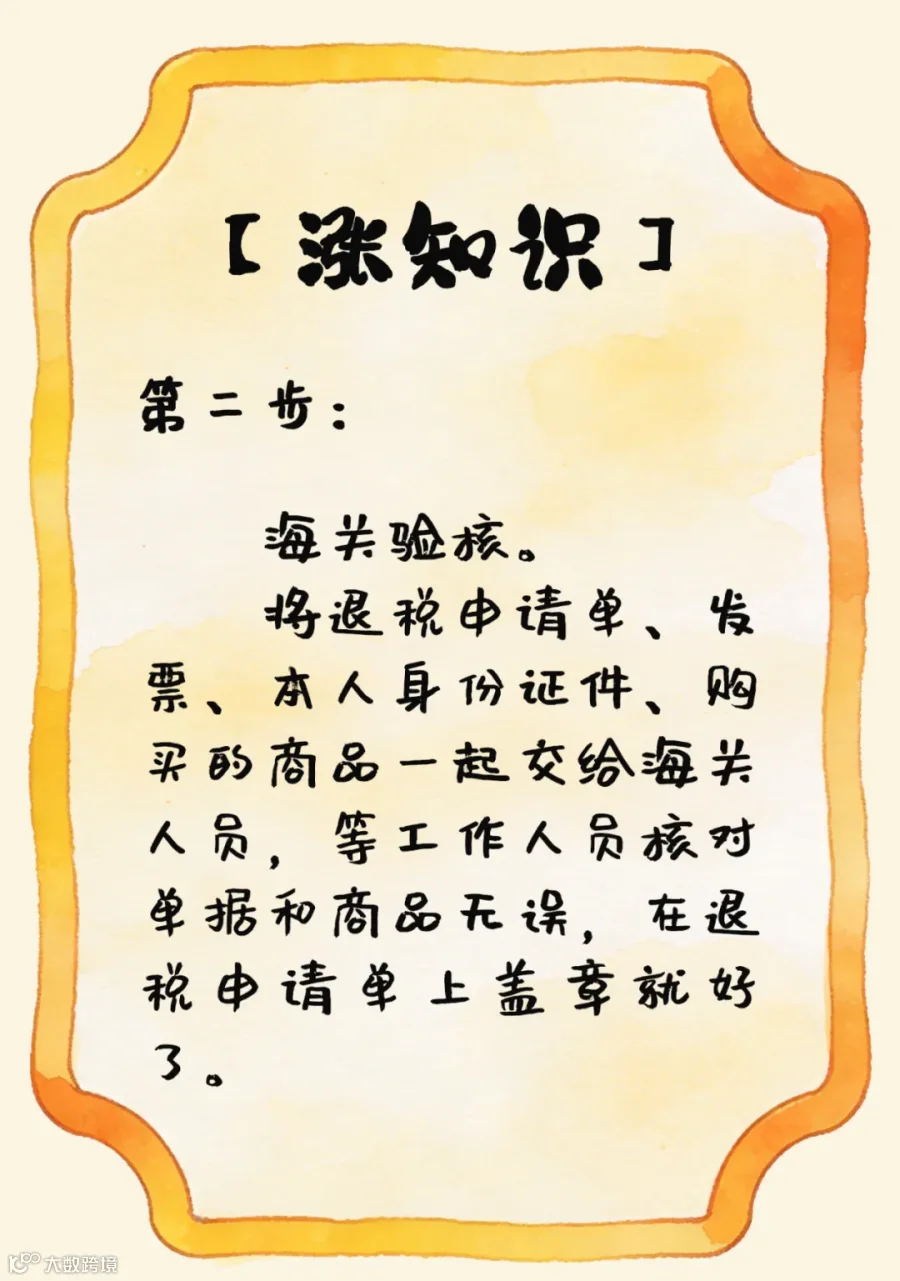 【涨知识】
第二步：
海关验核。
将退税申请单、发
票、本人身份证件、购
买的商品一起交给海关
人员，等工作人员核对
单据和商品无误，在退
税申请单上盖章就好
了。
大数跨境